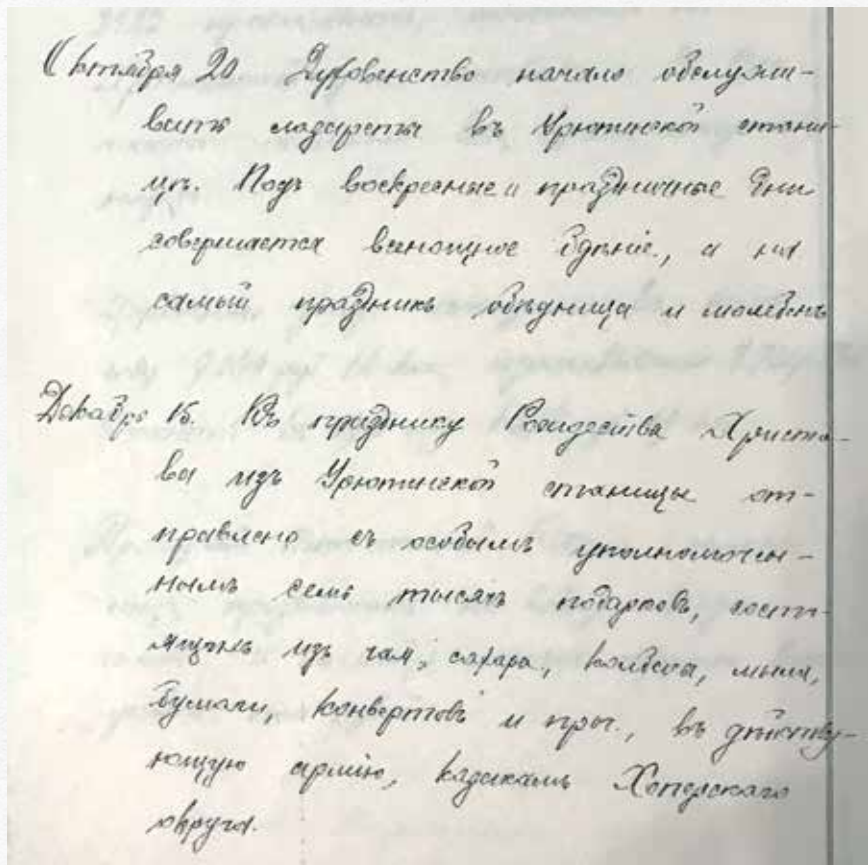 Октября 20. Духовенство начало обслужи-
вать лазареты въ Урюпинской стани-
цѣ. Подъ воскресные и праздничные дни
совершается всенощное бдѣніе, а на
самый праздникъ обѣдница и молебенъ
Декабря 15. Къ празднику Рождества Христо-
ва изъ Урюпинской станицы от-
правлено съ особымъ уполномочен-
нымъ семь тысячъ подарковъ, состо-
ящихъ изъ чая, сахара, колбасы, мыла,
бумаги, конвертовъ и проч., въ дѣйству-
ющую армію, казакамъ Хоперскаго
округа.